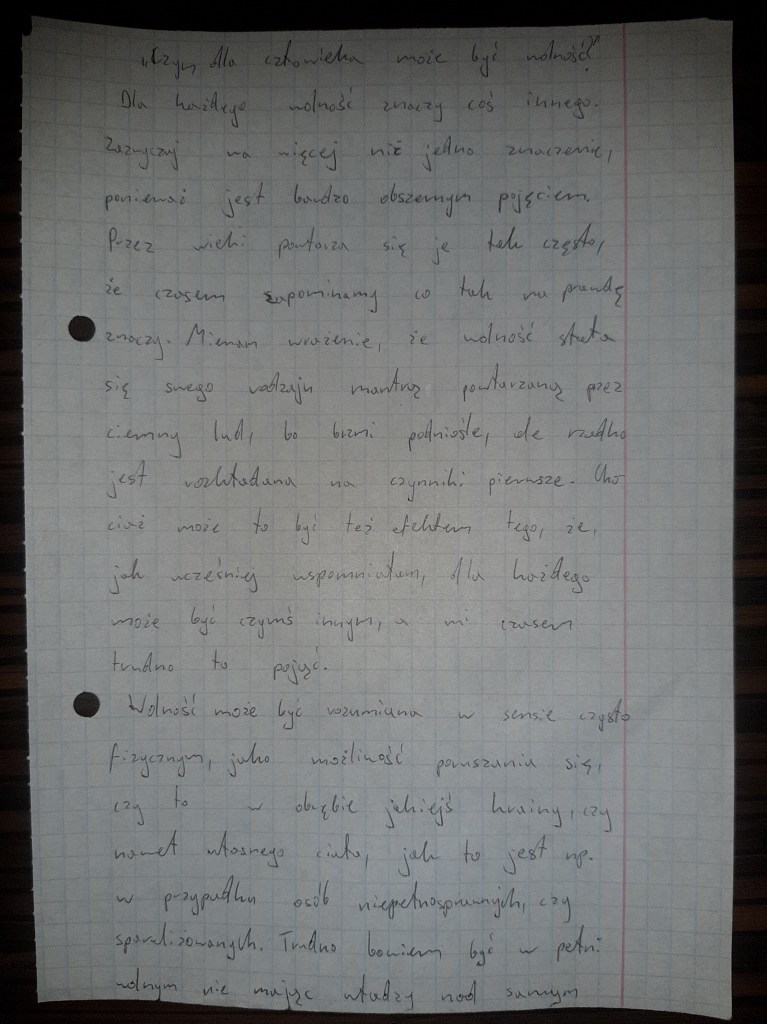 „Czym dla człowieka może być wolność?"
Dla każdego wolność znaczy coś innego.
Zazwyczaj ma więcej niż jedno znaczenie,
ponieważ jest bardzo obszernym pojęciem.
Przez wieki powtarza się je tak często,
że czasem zapominamy co tak na prawdę
znaczy. Miewam wrażenie, że wolność stała
się swego rodzaju mantrą powtarzaną przez
ciemny lud, bo brzmi podniośle, ale rzadko
jest rozkładana na czynniki pierwsze. Cho
ciaż może to być też efektem tego, że,
jak wcześniej wspomniałam, dla każdego
może być czymś innym, a mi czasem
trudno to pojąć.
Wolność może być rozumiana w sensie czysto
fizycznym, jako możliwość poruszania się,
czy to w obrębie jakiejś krainy, czy
nawet własnego ciała, jak to jest np.
w przypadku osób niepełnosprawnych, czy
sparaliżowanych. Trudno bowiem być w pełni
wolnym nie mając władzy nad samym